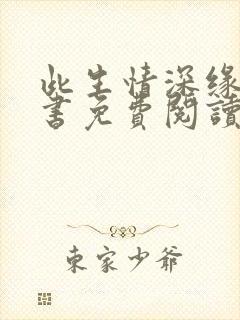 此生情深緣
書免費閱讀
東家少爺